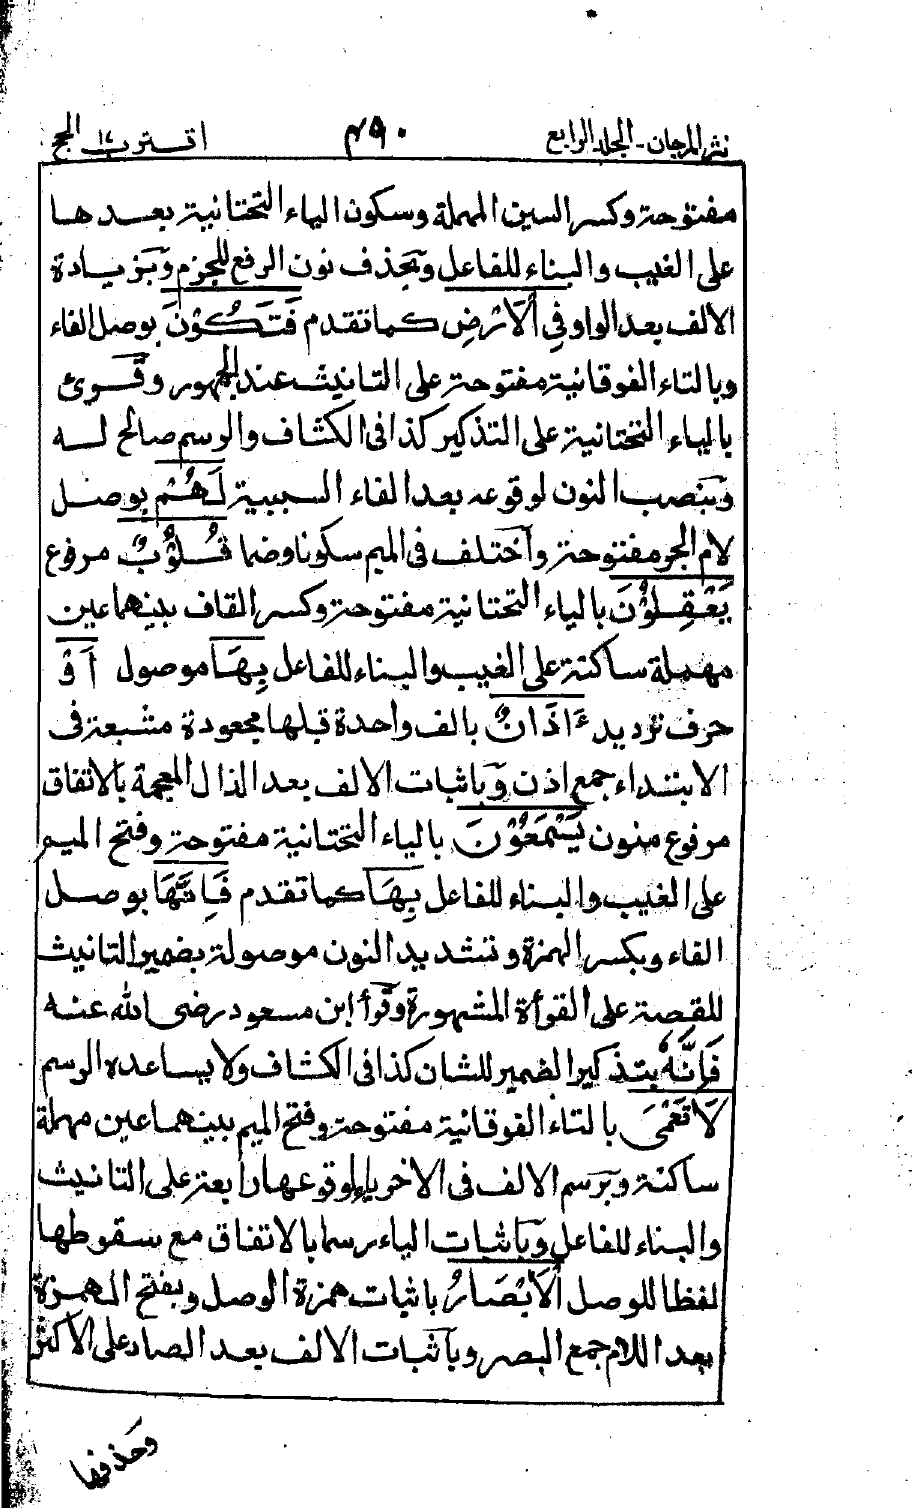 نثر المرجان - المجلد الرابع ٤٩٠ اقترب ١٧ الحج
مفتوحة وكسر السين المهملة وسكون الياء التحتانية بعدها
على الغيب والبناء للفاعل وبحذف نون الرفع للجزم وبزيادة
الالف بعد الواو فِي الْاَرْضِ كما تقدم فَتَكُوْنَ بوصل الفاء
وبالتاء الفوقانية مفتوحة على التانيث عند الجمهور وقرئ
بالياء التحتانية على التذكير كذا فى الكشاف والرسم صالح له
وبنصب النون لوقوعه بعد الفاء السببية لَهُمْ بوصل
لام الجر مفتوحة واختلف فى الميم سكونا وضما قُلُوْبٌ مرفوع
يَعْقِلُوْنَ بالياء التحتانية مفتوحة وكسر القاف بينهما عين
مهملة ساكنة على الغيب والبناء للفاعل بِهَا موصول اَوْ
حرف ترديد ءَاذَانٌ بالف واحدة قبلها مجعودة مشبعة فى
الابتداء جمع اذن وباثبات الالف بعد الذال المعجمة بالاتفاق
مرفوع منون يَسْتَمِعُوْنَ بالياء التحتانية مفتوحة وفتح الميم
على الغيب والبناء للفاعل بِهَا كما تقدم فَاِنَّهَا بوصل
الفاء وبكسر الهمزة وتشديد النون موصولة بضمير التانيث
للقصة على القرأة المشهورة وقرأ ابن مسعود رضى الله عنه
فَاِنَّهُ بتذكير الضمير للشان كذا فى الكشاف ولا يساعده الرسم
لَا تَعْمَى بالتاء الفوقانية مفتوحة وفتح الميم بينهما عين مهملة
ساكنة وبرسم الالف فى الاخر ياء لوقوعها رابعة على التانيث
والبناء للفاعل وباثبات الياء رسما بالاتفاق مع سقوطها
لفظا للوصل الْاَبْصَارُ باثبات همزة الوصل وبفتح الهمزة
بعد اللام جمع البصر وباثبات الالف بعد الصاد على الاكثر
وحذفها